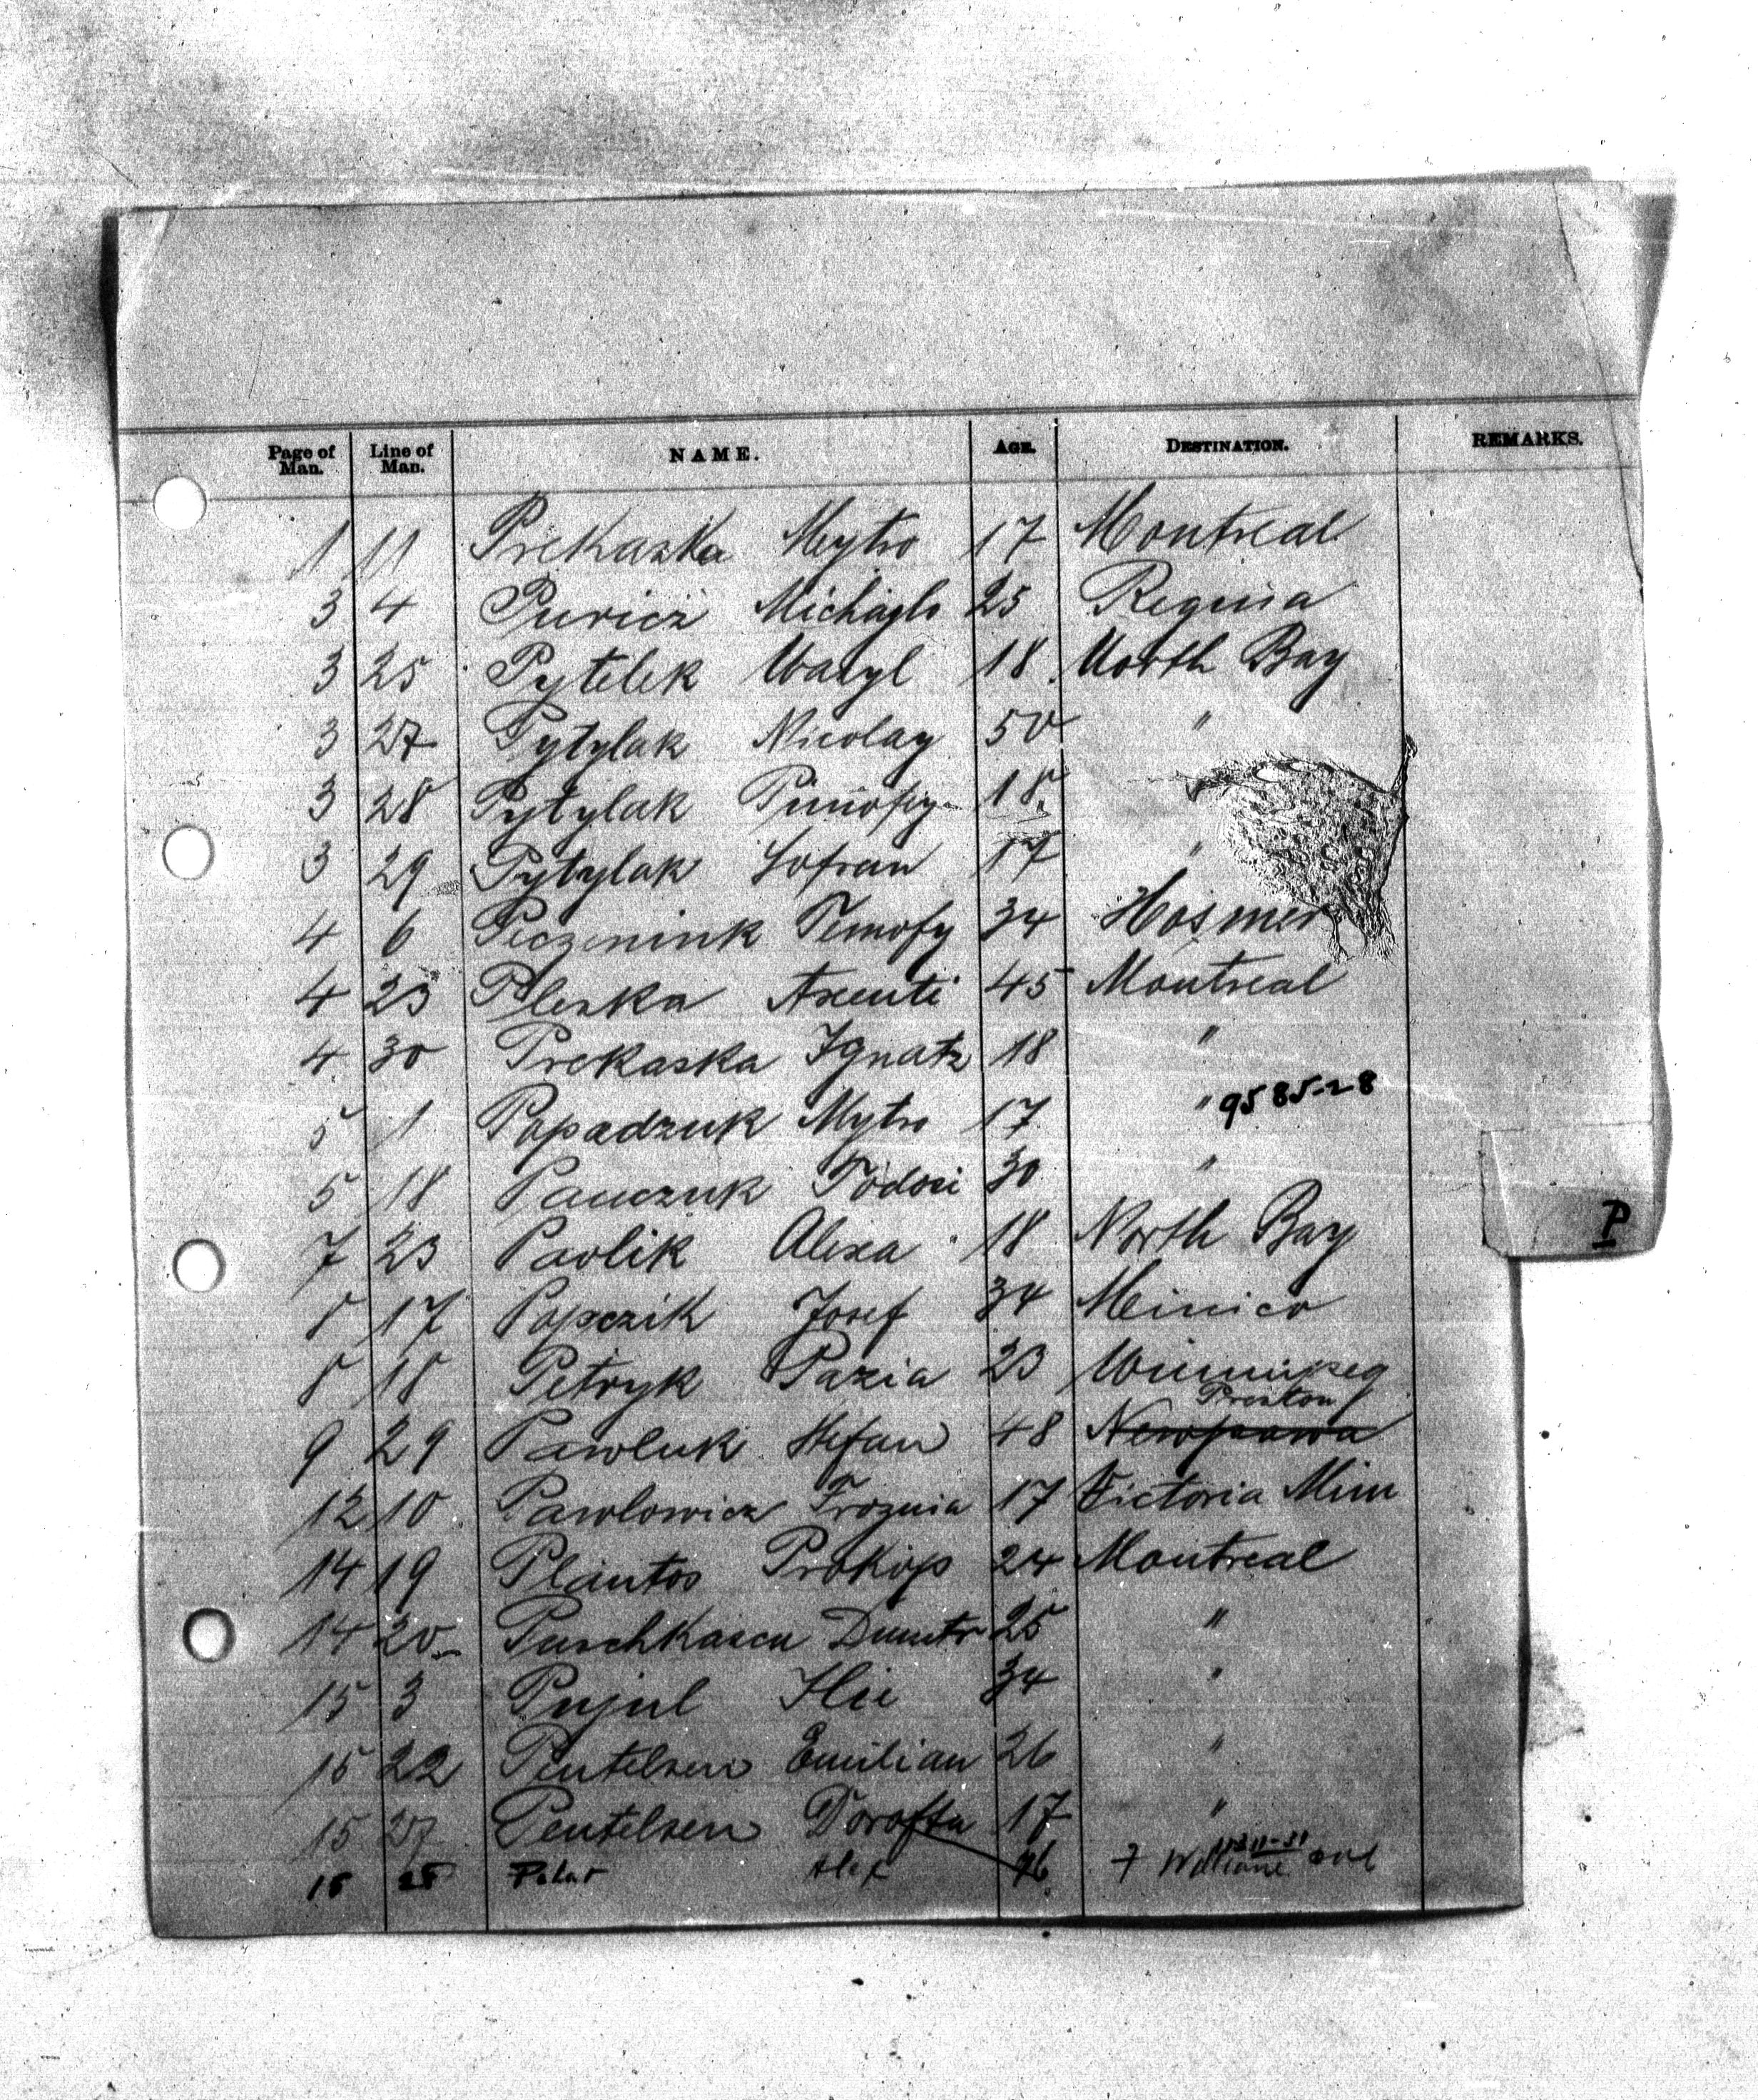 Page of Man. Line of Man. NAME. AGE. DESTINATION. REMARKS.
1 11 Prekaszka Mytro 17 Montreal
3 4 Puricz Michaylo 25 Regina
3 25 Pytelek Wasyl 18 North Bay
3 27 Pytylak Nicolay 50 "
3 28 Pytylak Timofiy 18
3 29 Pytylak Sofran 17 "
4 6 Peczenink Temofy 34 Hosmer
4 23 Pleska Axenti 45 Montreal
4 30 Prekaska Ignatz 18 "
5 1 Popadzuk Mytro 17 " 9585-28
5 18 Pauczuk Todosi 30 "
7 23 Pavlik Alexa 18 North Bay
8 17 Popczik Josef 34 Minico
8 18 Petryk Pazia 23 Winnipeg
Preston
9 29 Pawluk Stefan 48 Newpawa
12 10 Pawlowicz Froznia 17 Victoria Mim
14 19 Plantos Prokop 24 Montreal
14 20 Puschkascu Dumtr 25 "
15 3 Pujul Ilie 34 "
15 22 Pentelsen Emilian 26 "
15 27 Pentelsen Dorofta 17 "
15 28 Alex 26 7 William ave
P